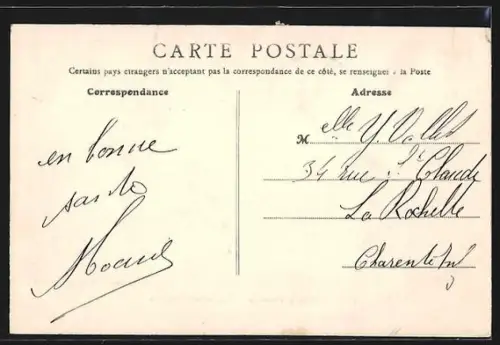 CARTE POSTALE
Certains pays etrangers n'acceptant pas la correspondance de ce côté, se renseigner à la Poste
Correspondance
Adresse
en bonne
santé
Melle Y. Vallet
34 rue St Claude
La Rochelle
Charente Inf